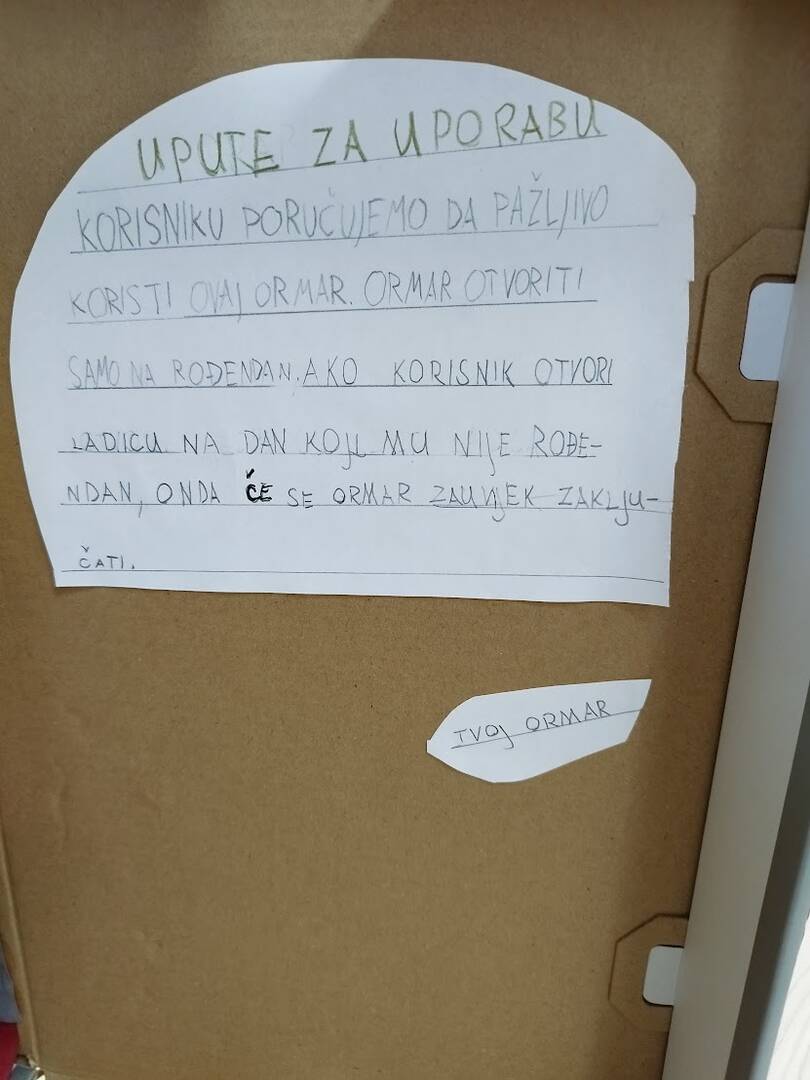 UPUTE ZA UPORABU
KORISNIKU PORUČUJEMO DA PAŽLJIVO
KORISTI OVAJ ORMAR. ORMAR OTVORITI
SAMO NA ROĐENDAN. AKO KORISNIK OTVORI
LADICU NA DAN KOJI MU NIJE ROĐE-
NDAN, ONDA ČE SE ORMAR ZAUVIJEK ZAKLJU-
ČATI.
TVOJ ORMAR